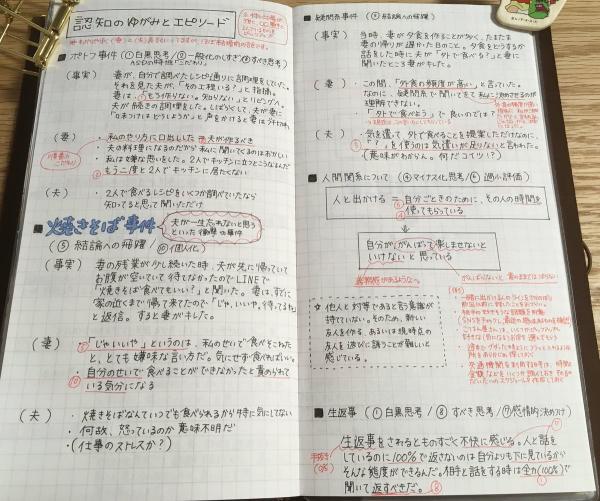 認知のゆがみとエピソード
■ポトフ事件(①白黒思考/②一般化のしすぎ/⑧すべき思考)
ASDの特性「こだわり」
(事実) 妻が、自分で調べたレシピ通りに調理をしていた。
それを見た夫が、「その工程いる?」と指摘。
妻は、もう作らない。知らない」とリビングへ。
夫が続きの調理をした。しばらくして、夫が妻に
「味つけはどうしようか。」と声をかけると妻はブチ切れ
(妻) ・私のやり方に口出しした 夫が作るべき
・夫の料理になるのだから私に聞いてくるのはおかしい
・私は嫌な思いをした。2人でキッチンに立つとこうなるんだ
・もう二度と2人でキッチンに居たくない
(夫) ・2人で食べるレシピをいくつか調べていたなら
知ってると思って聞いただけ
■焼きそば事件
夫が一生忘れないと思う
といった衝撃の事件
(⑤結論への飛躍/⑩個人化)
(事実) 妻の残業が少し続いた時、夫が先に帰っていて
お腹が空いていて待てなかったのでLINEで
「焼きそば食べてもいい?」と聞いた。妻は、すでに
家の近くまで帰って来てたので「じゃ、いいや。待ってるね」
と返信。すると妻がキレた。
(妻) ・「じゃいいや」というのは、私のせいで食べそこねた
と、とても嫌味な言い方だ。気にせず食べればいい。
・自分のせいで食べることができなかったと責められて
いる気分になる
(夫) ・焼きそばなんていつでも食べられるから特に気にしてない
・何故、怒っているのか意味不明だ
・(仕事のストレスか?)
■疑問系事件 (⑤結論への飛躍)
(事実) 当時、妻が夕食を作ることが多く、たまたま
妻の帰りが遅かった日のこと。夕食をどうするか
話をした時に夫が「外で食べる?」と妻に
聞いたところ妻がキレた。
(妻) ・この間、「外食の頻度が高い」と言っていた。
なのに、疑問系で聞いてきて私に決めさせるのが
理解できない。
・「外で食べよう」で良いのでは?
(夫) ・気を遣って、外で食べることを提案しただけなのに、
「?」を使うのは気遣いが足りないと言われた。
(意味がわからん。何だコイツ!?)
■人間関係について (④マイナス化思考/⑥過小評価)
人と出かける = 自分ごときのために、その人の時間を
使ってもらっている
自分ががんばって楽しませないと
いけないと思っている
☆他人と対等であると言う意識が
持てていない。そのため、新しい
友人を作る、あるいは現時点の
友人を遊びに誘うことが難しいと
感じている。
■生返事 (①白黒思考/⑧すべき思考/⑦感情的決めつけ)
生返事をされるとものすごく不快に感じる。人と話を
しているのに100%で返さないのは自分よりも下に見ているから
そんな態度ができるんだ。相手と話をする時は全力(100%)で
聞いて返すべきだ。